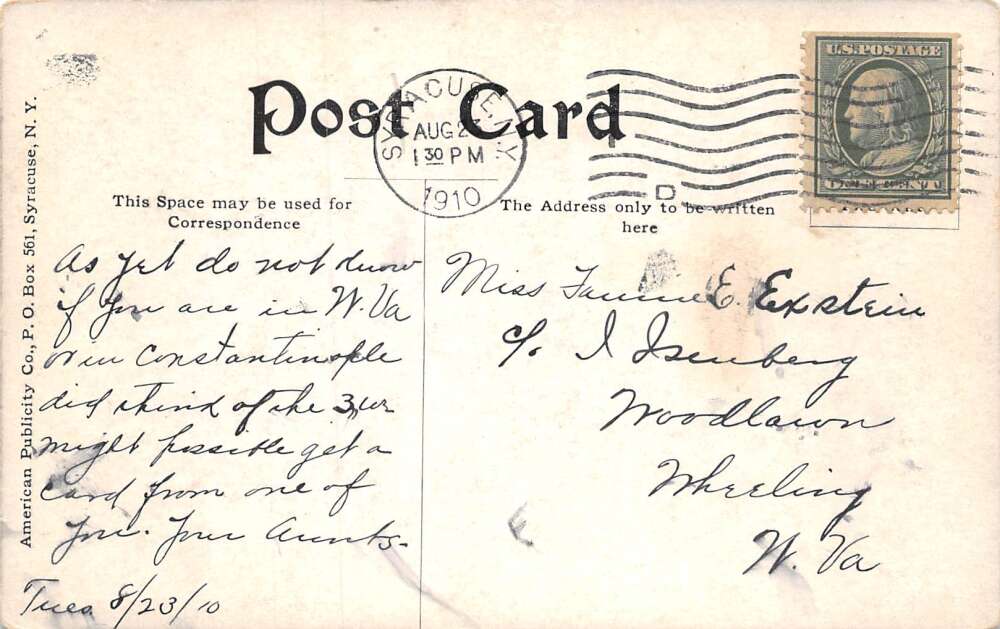 Post Card
SYRACUSE, N.Y.
AUG 2
1 30 PM
1910
D
U.S. POSTAGE
This Space may be used for
Correspondence
The Address only to be written
here
American Publicity Co., P. O. Box 561, Syracuse, N. Y.
As yet do not know
if you are in W. Va
or in Constantinople
did think of the 3, we
might possible get a
card from one of
you. Your Aunts-
Tues 8/23/10
Miss Fannie E. Exstein
c/o I Isenberg
Woodlawn
Wheeling
W. Va